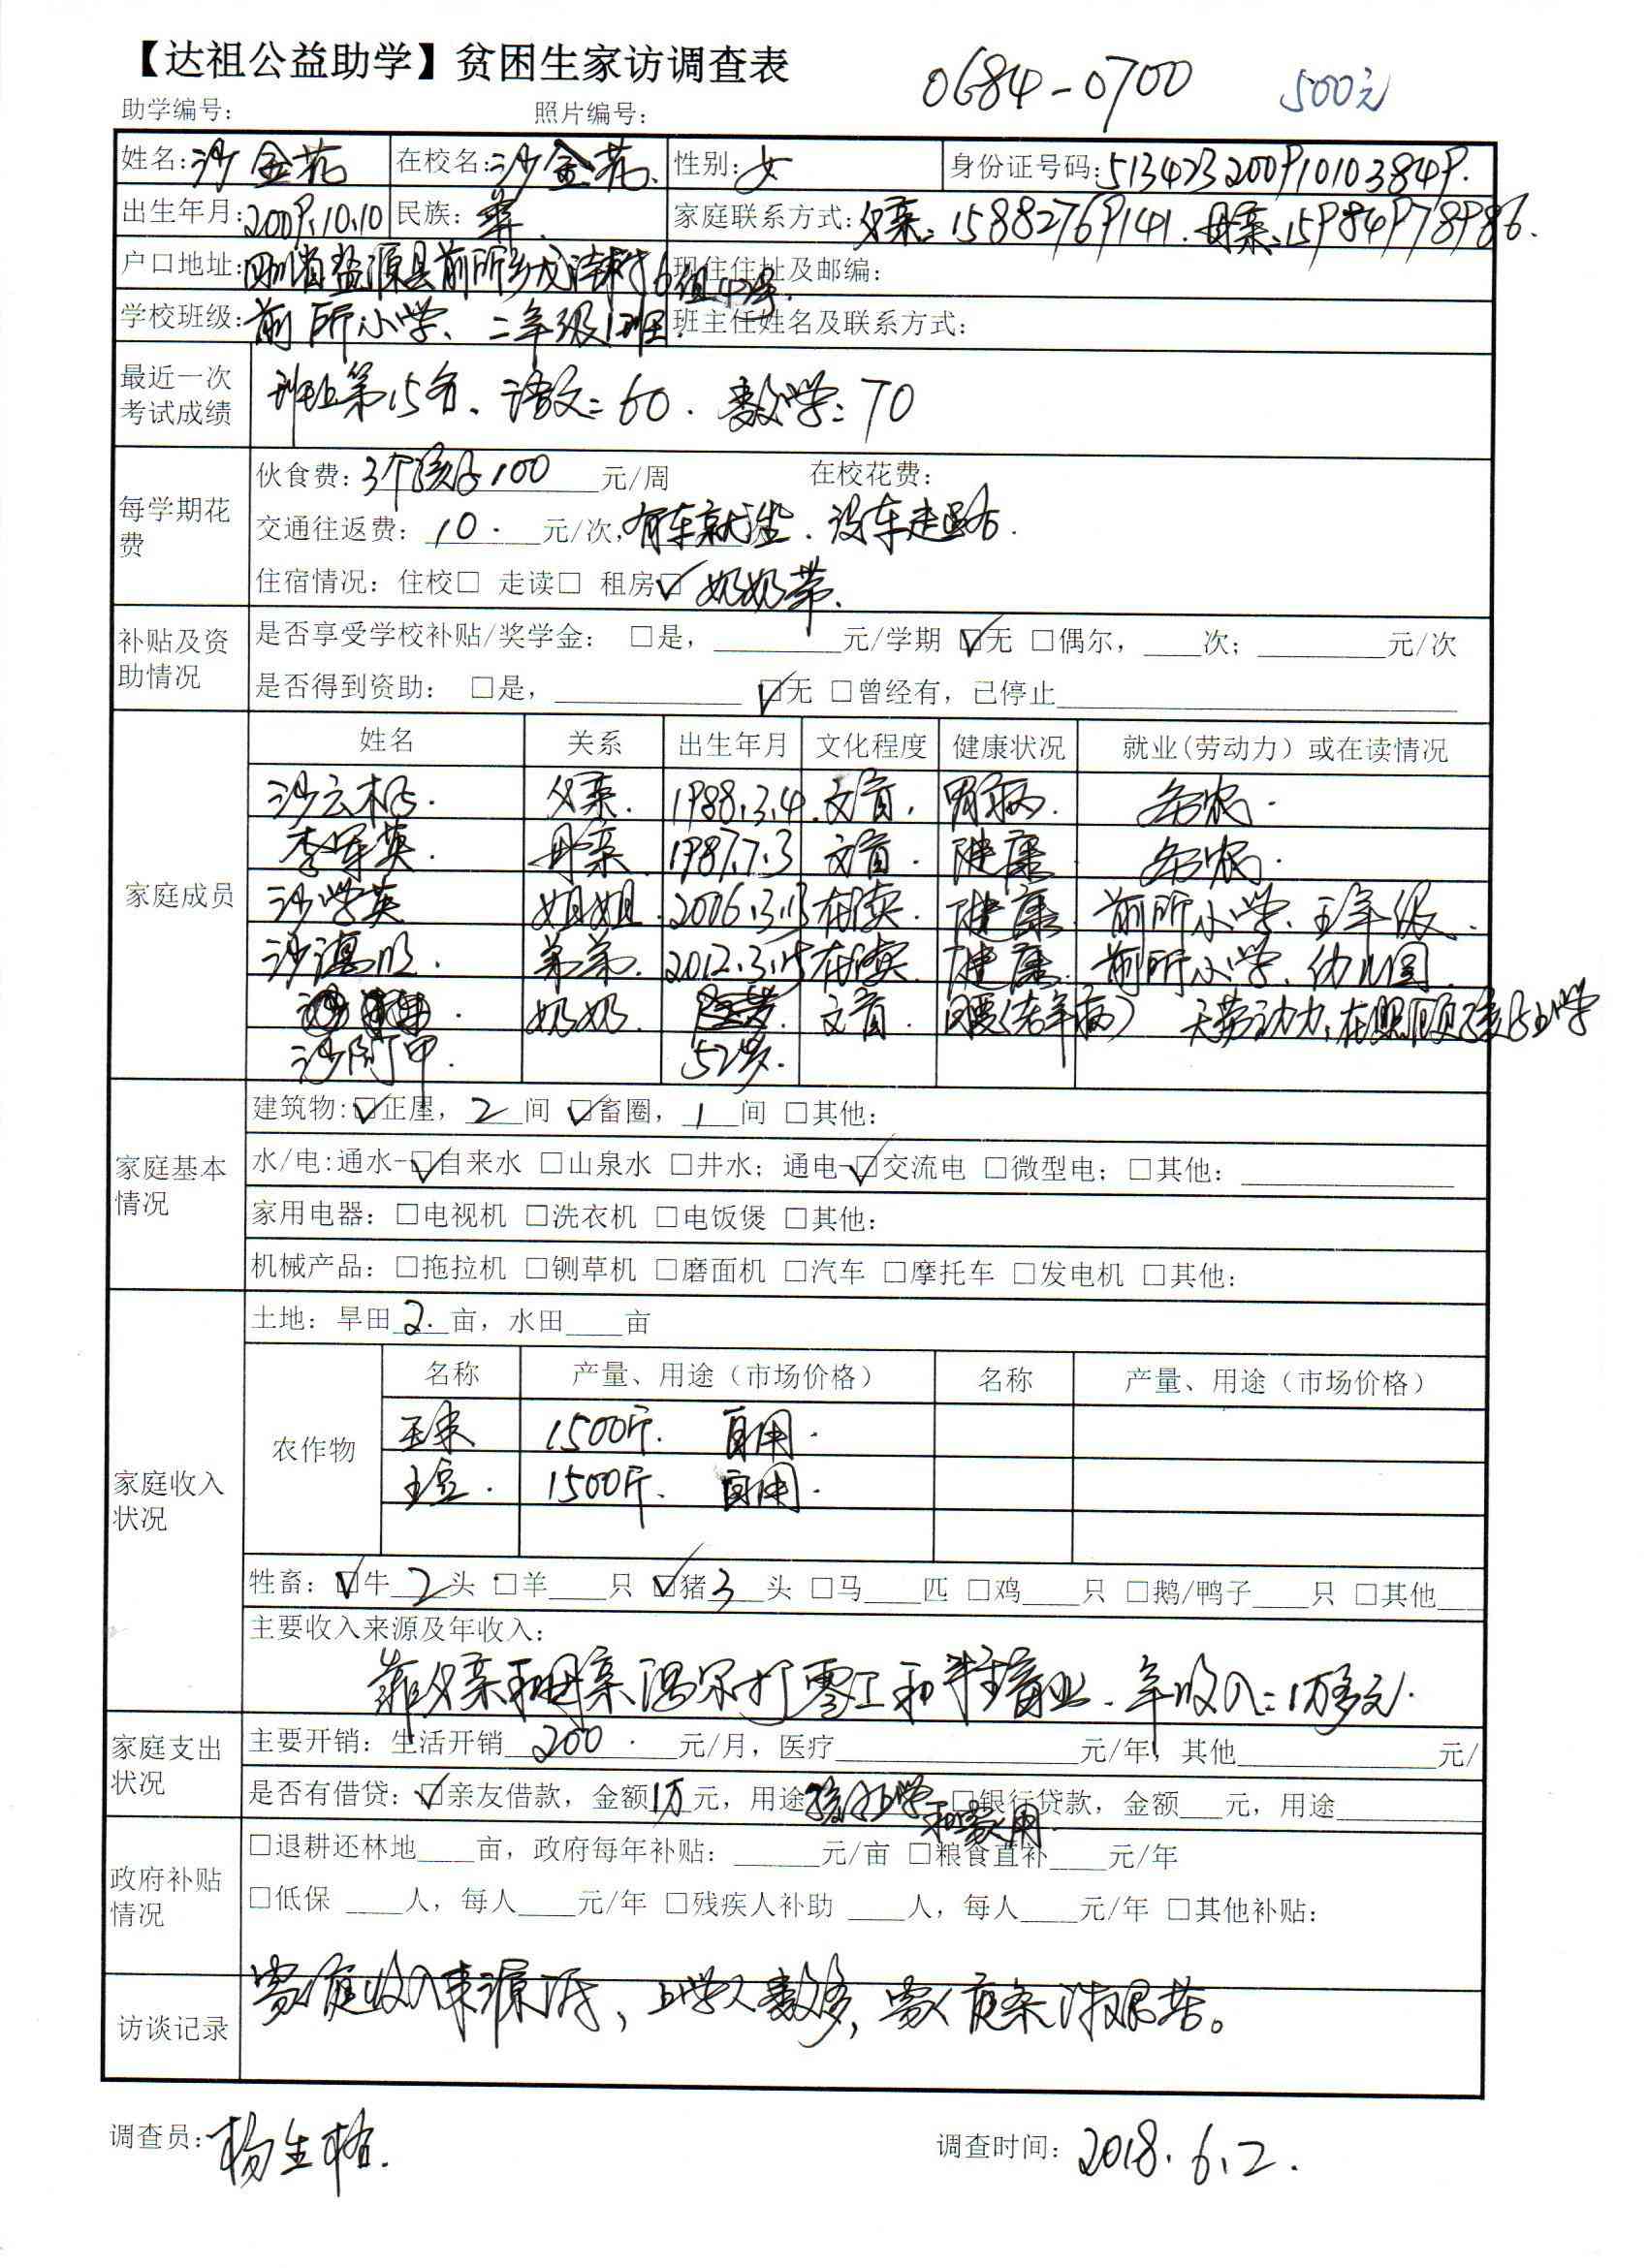 【达祖公益助学】贫困生家访调查表 0684-0700 500元
助学编号: 照片编号:
姓名:沙金花 在校名:沙金花. 性别:女 身份证号码:513423200910103849.
出生年月:2009.10.10 民族:彝. 家庭联系方式:父亲:15882769141.母亲:15984978986.
户口地址:四川省盐源县前所乡 村6组 号. 现住住址及邮编:
学校班级:前所小学、二年级1班. 班主任姓名及联系方式:
最近一次考试成绩 班上第15名、语文:60.数学:70
每学期花费
伙食费:3个孩子100元/周 在校花费:
交通往返费:10.元/次,有车就坐.没车走路.
住宿情况:住校□ 走读□ 租房☑ 奶奶带.
补贴及资助情况
是否享受学校补贴/奖学金: □是,____元/学期 ☑无 □偶尔,____次;____元/次
是否得到资助: □是,____ ☑无 □曾经有,已停止____
家庭成员
姓名 关系 出生年月 文化程度 健康状况 就业(劳动力)或在读情况
沙云 . 父亲. 1988.3.4. 文盲. 胃病. 务农.
李军英. 母亲. 1987.7.3 文盲. 健康 务农.
沙学英 姐姐. 2006.3.13 在读. 健康 前所小学.五年级.
沙 . 弟弟. 2012.3.15 在读. 健康. 前所小学.幼儿园
奶奶. 文盲. (老年病) 无劳动力,在照顾孩子上学
沙 甲. 52岁.
家庭基本情况
建筑物:☑正屋,2间 ☑畜圈,1间 □其他:
水/电:通水-☑自来水 □山泉水 □井水;通电-☑交流电 □微型电;□其他:____
家用电器:□电视机 □洗衣机 □电饭煲 □其他:
机械产品:□拖拉机 □铡草机 □磨面机 □汽车 □摩托车 □发电机 □其他:
家庭收入状况
土地:旱田2.亩,水田____亩
农作物
名称 产量、用途(市场价格) 名称 产量、用途(市场价格)
玉米 1500斤. 自用.
土豆. 1500斤. 自用.
牲畜:☑牛2头 □羊____只 ☑猪3头 □马____匹 □鸡____只 □鹅/鸭子____只 □其他____
主要收入来源及年收入:
靠父亲和母亲偶尔打零工和牲畜业.年收入:1万多元.
家庭支出状况
主要开销:生活开销200.元/月,医疗____元/年,其他____元/
是否有借贷:☑亲友借款,金额1万元,用途孩子上学和家用. □银行贷款,金额___元,用途____
政府补贴情况
□退耕还林地____亩,政府每年补贴:____元/亩 □粮食直补____元/年
□低保 ____人,每人____元/年 □残疾人补助 ____人,每人____元/年 □其他补贴:
访谈记录 家庭收入来源低,上学人数多,家庭条件很苦。
调查员:杨生格. 调查时间:2018.6.2.